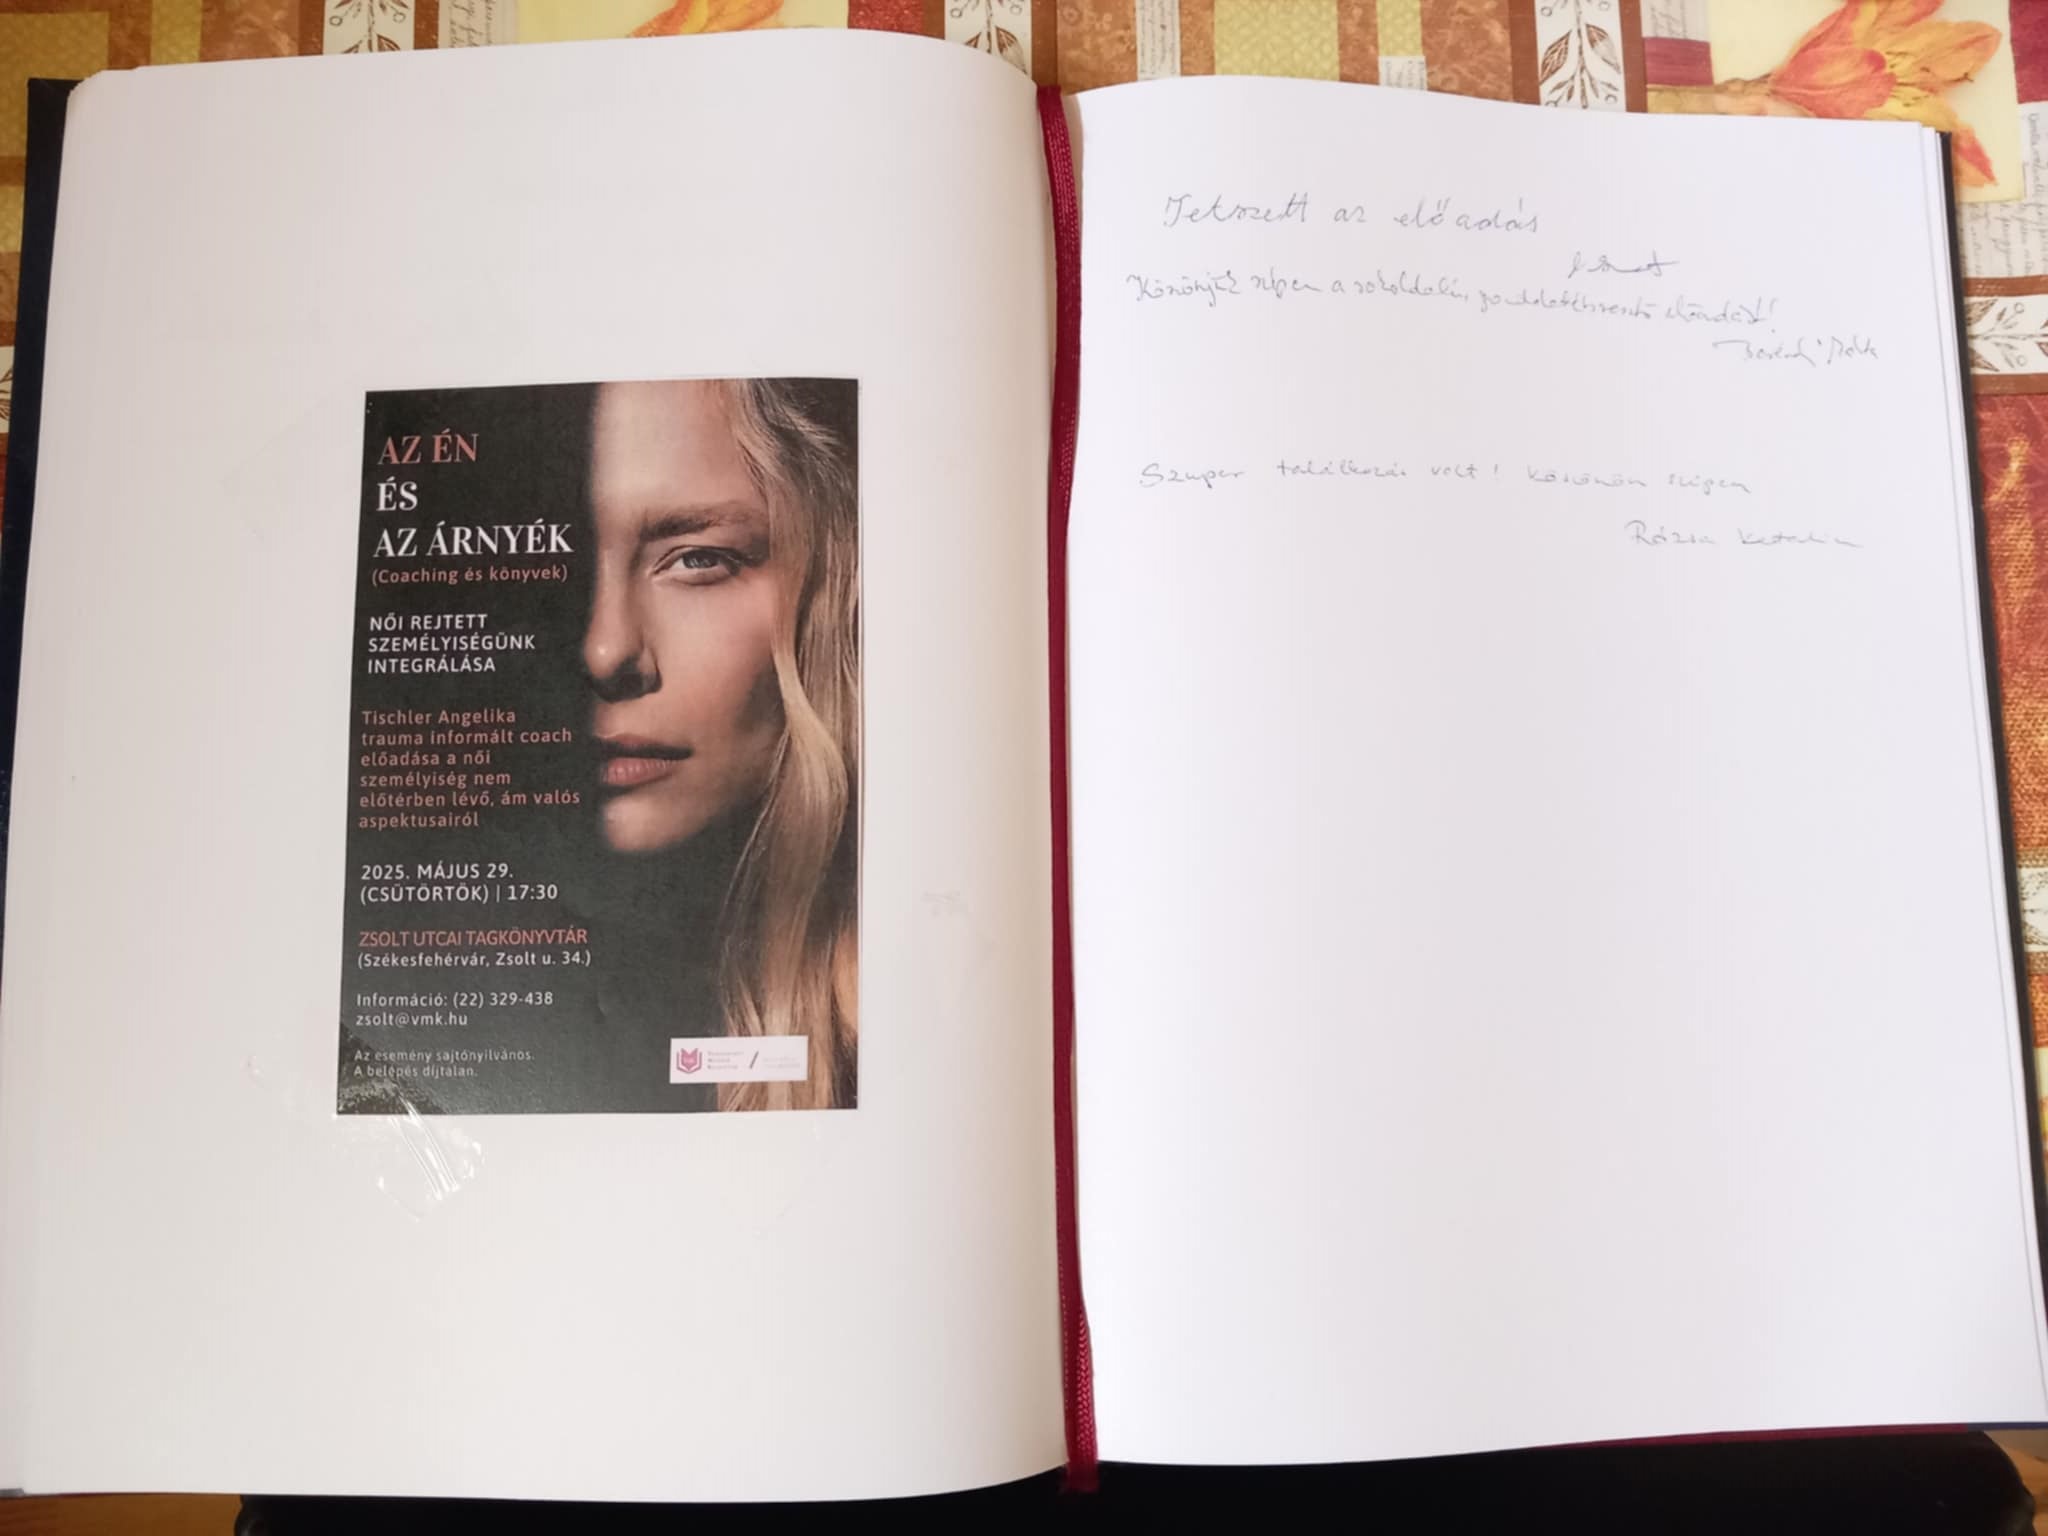 AZ ÉN
ÉS
AZ ÁRNYÉK
(Coaching és könyvek)
NŐI REJTETT
SZEMÉLYISÉGÜNK
INTEGRÁLÁSA
Tischler Angelika
trauma informált coach
előadása a női
személyiség nem
előtérben lévő, ám valós
aspektusairól
2025. MÁJUS 29.
(CSÜTÖRTÖK) | 17:30
ZSOLT UTCAI TAGKÖNYVTÁR
(Székesfehérvár, Zsolt u. 34.)
Információ: (22) 329-438
zsolt@vmk.hu
Az esemény sajtónyilvános.
A belépés díjtalan.
Tetszett az előadás
Köszönjük szépen a sokoldalú, gondolatébresztő előadást!
Szuper találkozás volt! Köszönöm szépen
Rózsa Katalin